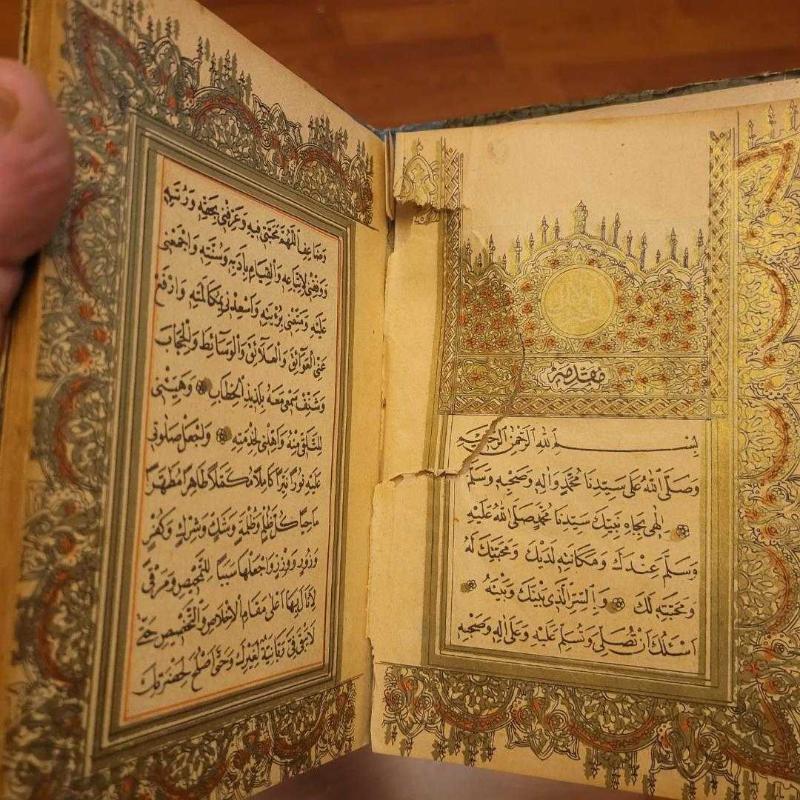 مقدمة
بِسْمِ اللهِ الرَّحْمٰنِ الرَّحِيمِ
وَصَلَّى اللهُ عَلَى سَيِّدِنَا مُحَمَّدٍ وَاٰلِهِ وَصَحْبِهِ وَسَلَّمَ
اِلٰهِي بِجَاهِ نَبِيِّكَ سَيِّدِنَا مُحَمَّدٍ صَلَّى اللهُ عَلَيْهِ
وَسَلَّمَ عِنْدَكَ وَمَكَانَتِهِ لَدَيْكَ وَمَحَبَّتِكَ لَهُ
وَمَحَبَّتِهِ لَكَ وَبِالسِّرِّ الَّذِي بَيْنَكَ وَبَيْنَهُ
اَسْئَلُكَ اَنْ تُصَلِّيَ وَتُسَلِّمَ عَلَيْهِ وَعَلٰى اٰلِهِ وَصَحْبِهِ
وَضَاعِفِ اللّٰهُمَّ مَحَبَّتِي فِيهِ وَعَرِّفْنِي بِحَقِّهِ وَرُتَبِهِ
وَوَفِّقْنِي لِاتِّبَاعِهِ وَالْقِيَامِ بِاَدَبِهِ وَسُنَّتِهِ وَاجْمَعْنِي
عَلَيْهِ وَمَتِّعْنِي بِرُؤْيَتِهِ وَاَسْعِدْنِي بِمُكَالَمَتِهِ وَارْفَعْ
عَنِّي الْعَوَائِقَ وَالْعَلَائِقَ وَالْوَسَائِطَ وَالْحِجَابَ
وَشَنِّفْ سَمْعِي مَعَهُ بِلَذِيذِ الْخِطَابِ وَهَيِّئْنِي
لِلتَّلَقِّي مِنْهُ وَاَهِّلْنِي لِخِدْمَتِهِ وَاجْعَلْ صَلَوتِي
عَلَيْهِ نُورًا نَيِّرًا كَامِلًا مُكَمَّلًا طَاهِرًا مُطَهَّرًا
مَاحِيًا كُلَّ ظُلْمٍ وَظُلْمَةٍ وَشَكٍّ وَشِرْكٍ وَكُفْرٍ
وَزُورٍ وَوِزْرٍ وَاجْعَلْهَا سَبَبًا لِلتَّمْحِيصِ وَمَرْقًى
لِاَنَالَ بِهَا اَعْلٰى مَقَامِ الْاِخْلَاصِ وَالتَّخْصِيصِ حَتّٰى
لَا يَبْقٰى فِيَّ رَبَّانِيَّةٌ لِغَيْرِكَ وَحَتّٰى اَصْلُحَ لِحَضْرَتِكَ